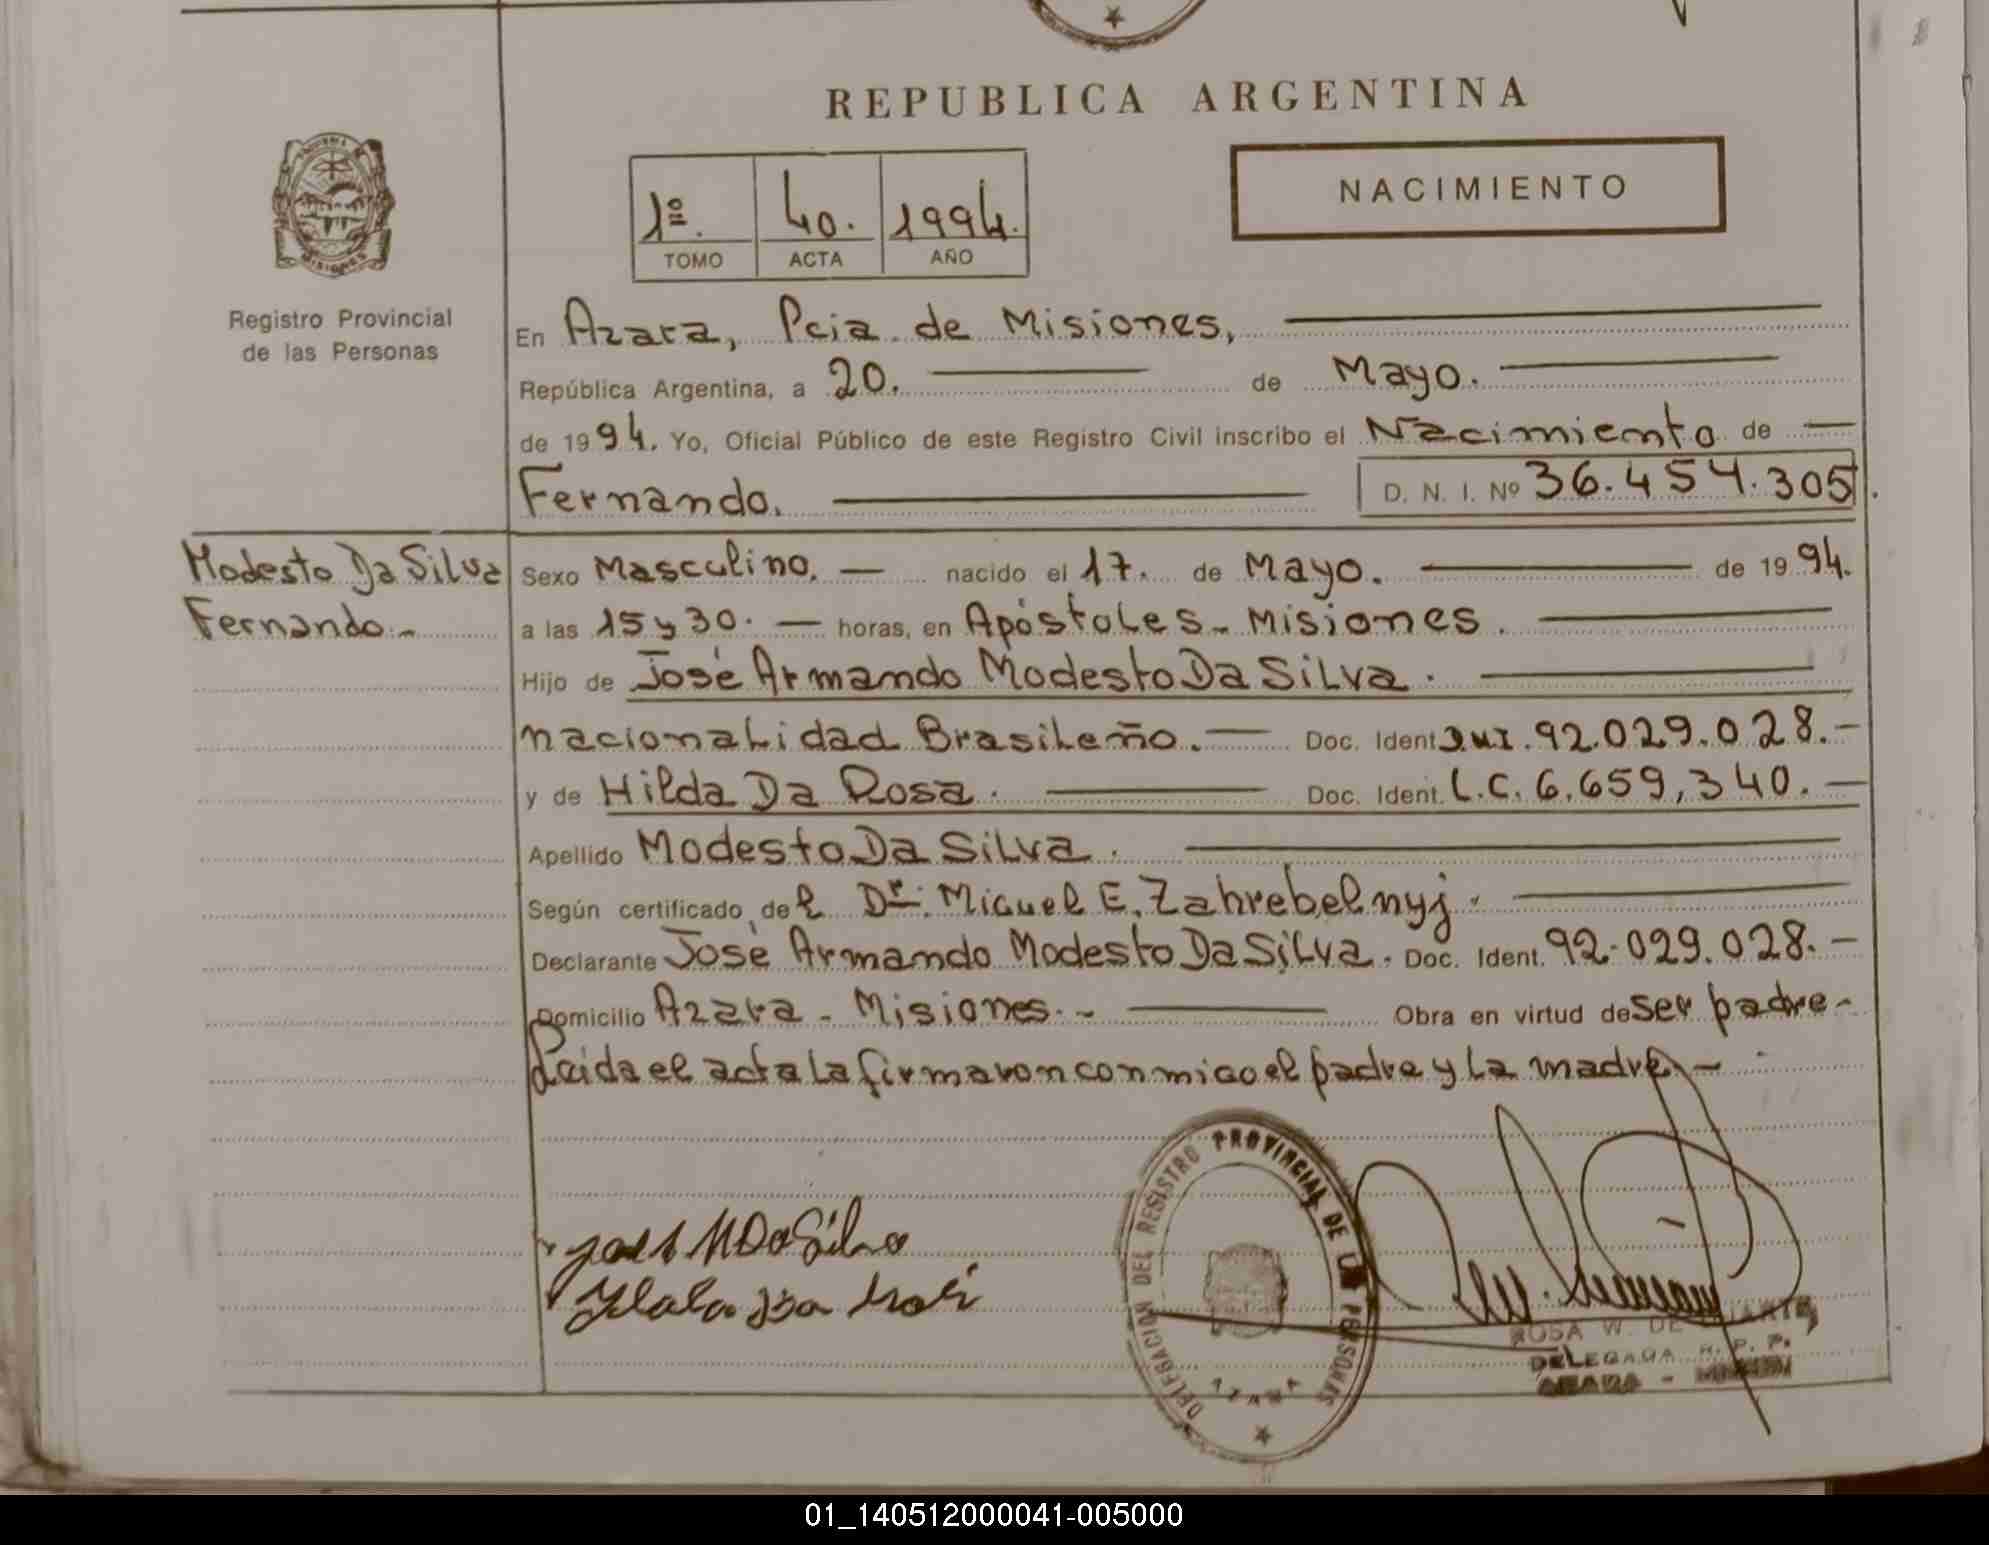 REPUBLICA ARGENTINA
NACIMIENTO
1º. 40. 1994.
TOMO ACTA AÑO
MISIONES
Registro Provincial
de las Personas
En Azara, Pcia. de Misiones,
República Argentina, a 20. de Mayo.
de 1994. Yo, Oficial Público de este Registro Civil inscribo el Nacimiento de
Fernando. D. N. I. Nº 36.454.305.
Modesto Da Silva
Fernando.-
Sexo Masculino. nacido el 17. de Mayo. de 1994.
a las 15 y 30. horas, en Apóstoles - Misiones.
Hijo de José Armando Modesto Da Silva.
nacionalidad Brasileño. Doc. Ident. 92.029.028.-
y de Hilda Da Rosa. Doc. Ident. L.C. 6.659,340.-
Apellido Modesto Da Silva.
Según certificado del Dr. Miguel E. Zahrebelnyj.
Declarante José Armando Modesto Da Silva. Doc. Ident. 92.029.028.-
Domicilio Azara - Misiones.- Obra en virtud de ser padre-
Leida el acta la firmaron conmigo el padre y la madre.-
DELEGACION DEL REGISTRO PROVINCIAL DE LAS PERSONAS
AZARA
ROSA W. DE DUARTE
DELEGADA R. P. P.
AZARA - MISIONES
01_140512000041-005000